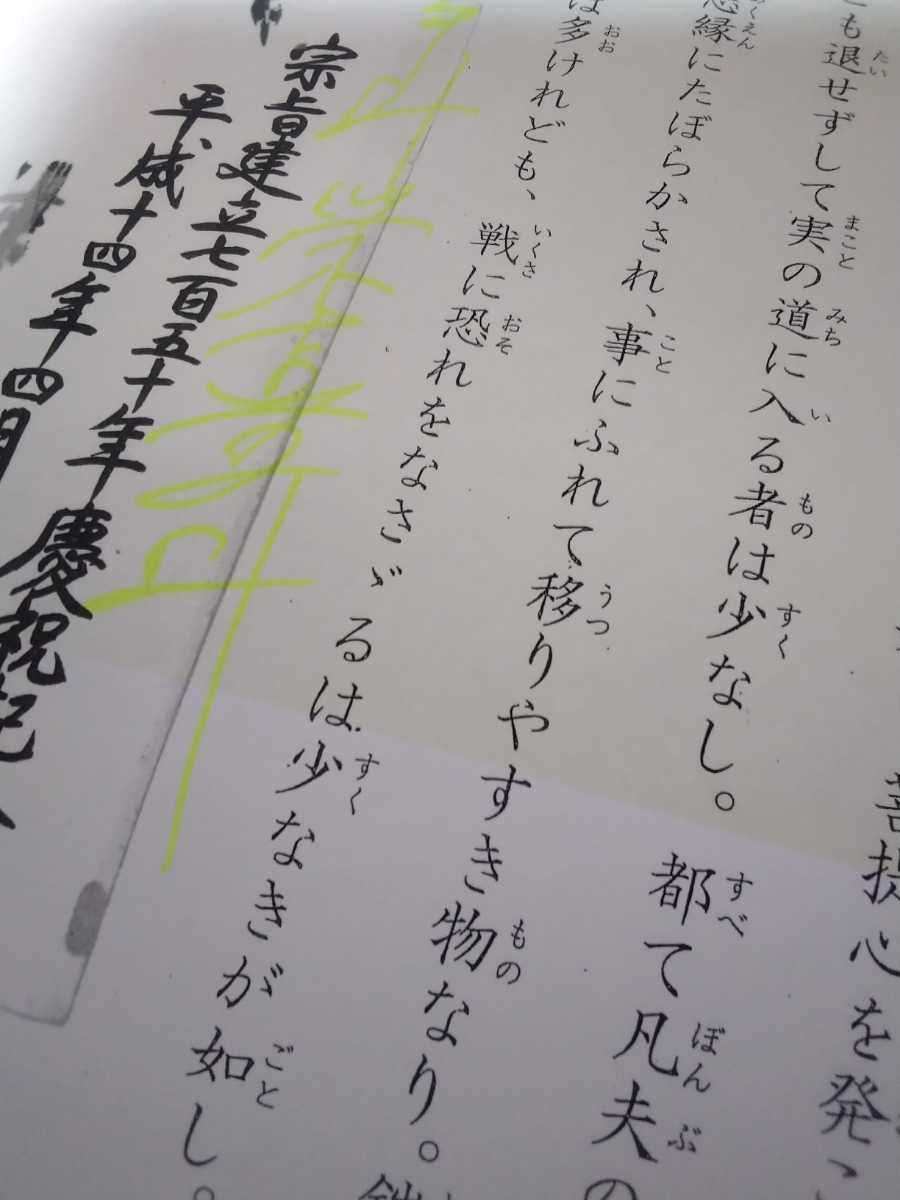 菩提心を発こ
も退せずして実の道に入る者は少なし。都て凡夫の
悪縁にたぼらかされ、事にふれて移りやすき物なり。鎧
は多けれども、戦に恐れをなさゞるは少なきが如し。
宗旨建立七百五十年慶祝記
平成十四年四月